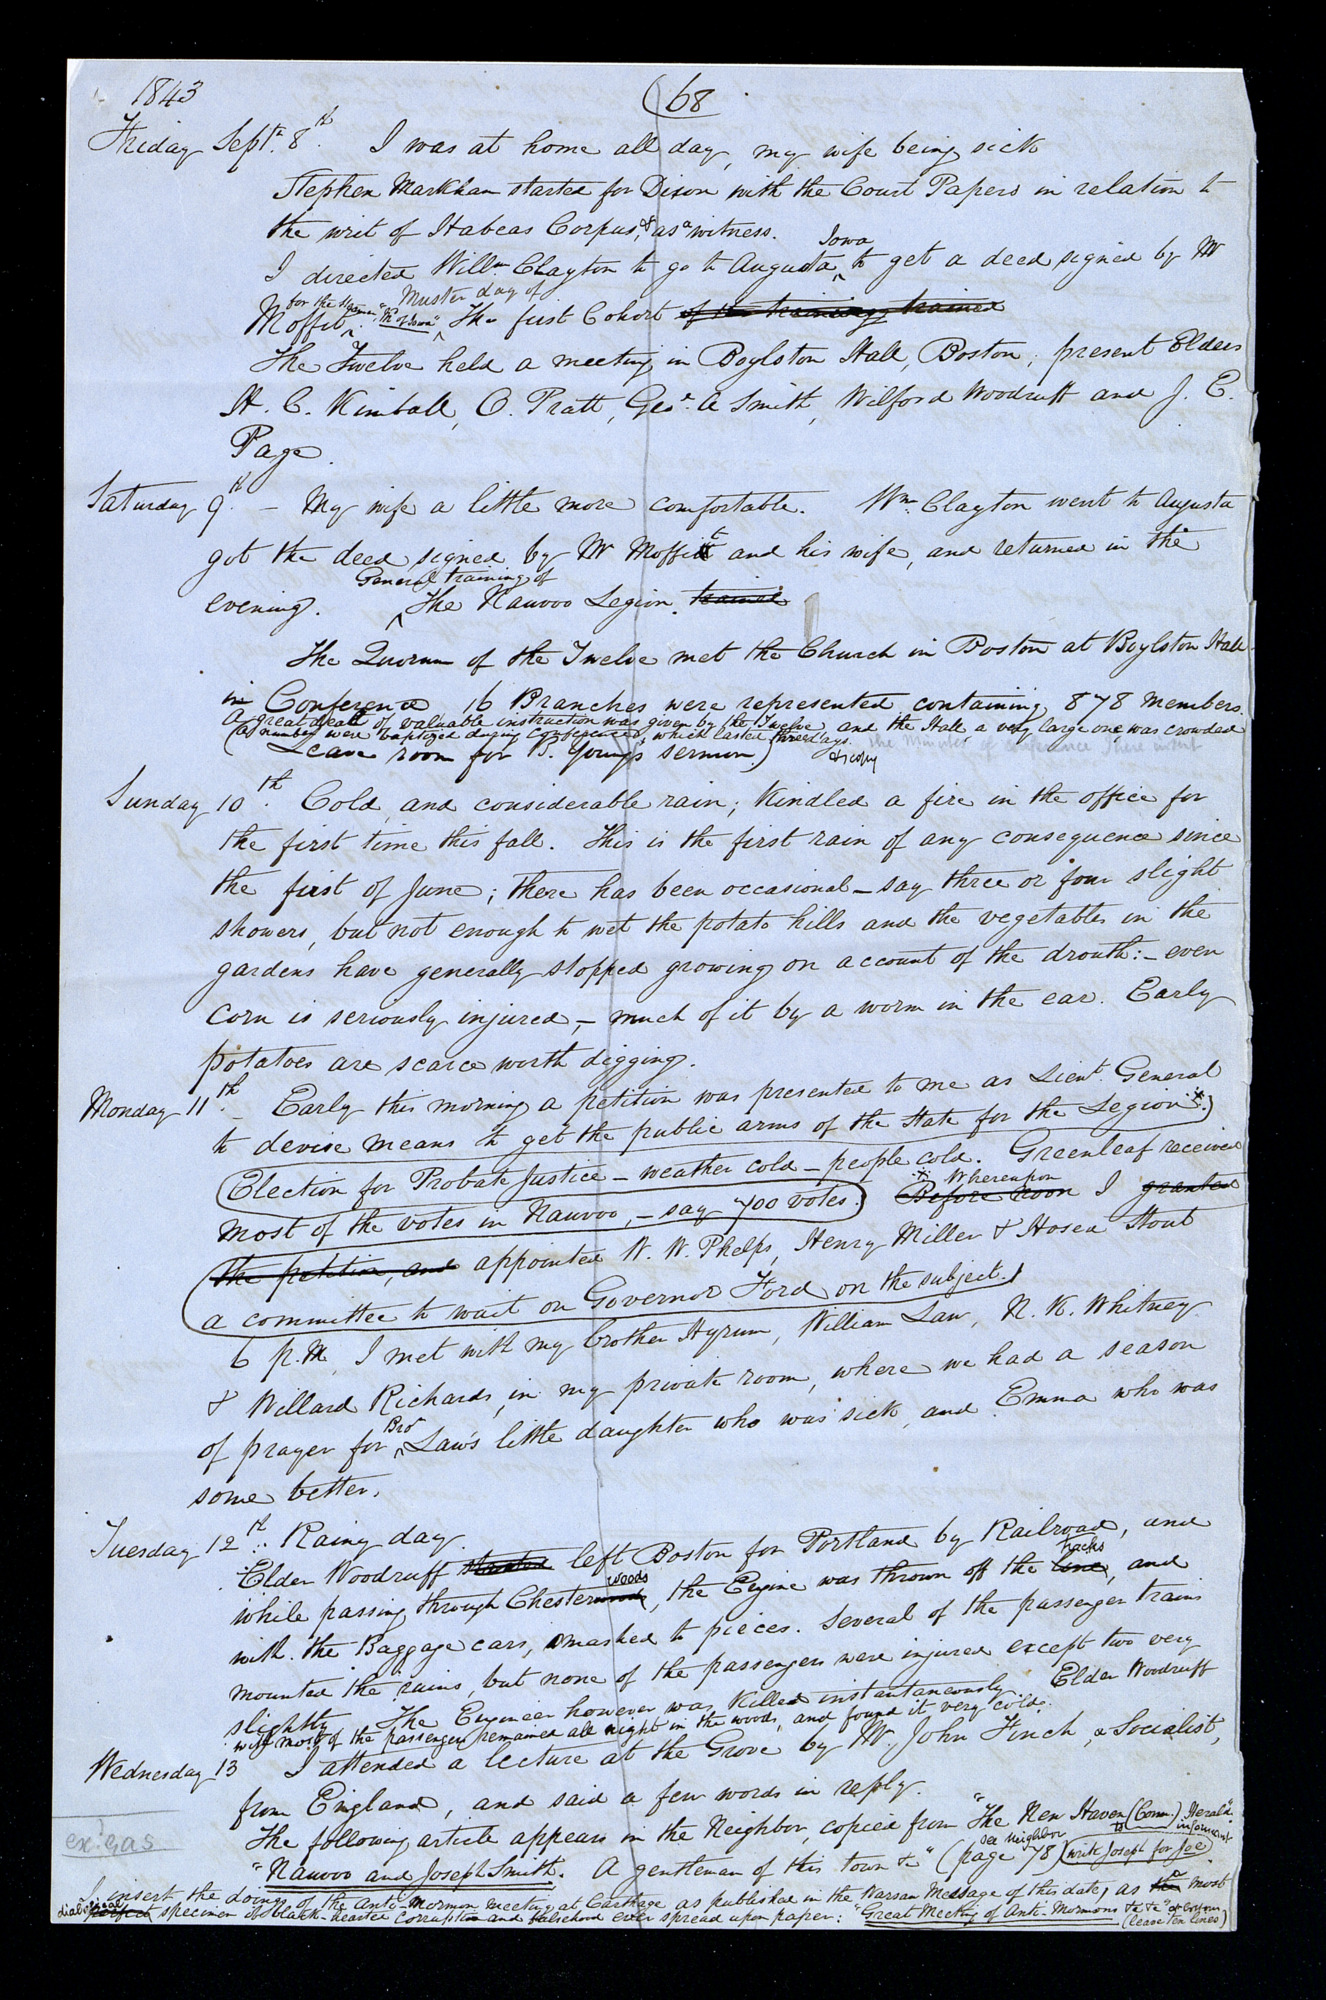 1843
(68
Friday Septr. 8th. I was at home all day, my wife being sick
Stephen Markham started for Dixon with the Court Papers in relation to
the writ of Habeas Corpus, & as a witness.
Iowa
I directed Willm Clayton to go to Augusta ^ to get a deed signed by Mr
for the Steamer Muster day of
Moffit ^ "M. of Iowa" ^ The first Cohort of the training trained
The Twelve held a meeting in Boylston Hall, Boston; present Elders
H. C. Kimball, O. Pratt, Geoe. A Smith, Wilford Woodruff and J. E.
Page.
Saturday 9th. – My wife a little more comfortable. Wm. Clayton went to Augusta
got the deed signed by Mr Moffitt and his wife, and returned in the
General training of
evening. ^ The Nauvoo Legion. trained
The Quorum of the Twelve met the Church in Boston at Boylston Hall
in Conference 16 Branches were represented containing 878 members.
A great deal of valuable instruction was given by the Twelve, and the Hall a very large one was crowded
(a number were baptized during conference, which lasted three days. the Minutes of conference there insert
Leave room for B. Young's sermon.) & copy
Sunday 10th. Cold, and considerable rain; Kindled a fire in the office for
the first time this fall. This is the first rain of any consequence since
the first of June; there has been occasional – say three or four slight
showers, but not enough to wet the potato hills and the vegetables in the
gardens have generally stopped growing on account of the drouth: – even
corn is seriously injured, – much of it by a worm in the ear. Early
potatoes are scarce worth digging.
Monday 11th. – Early this morning a petition was presented to me as Lieut. General
to devise means to get the public arms of the State for the Legion.)
Election for Probate Justice – weather cold – people cold. Greenleaf received
Whereupon
most of the votes in Nauvoo, – say 700 votes.) Before noon I granted
the petition, and appointed W. W. Phelps, Henry Miller & Hosea Stout
a committee to wait on Governor Ford on the subject.
6 p.m. I met with my brother Hyrum, William Law, N. K. Whitney
& Willard Richards, in my private room, where we had a season
Bror
of prayer for ^ Law's little daughter who was sick, and Emma who was
some better.
Tuesday 12th. Rainy day.
Elder Woodruff started left Boston for Portland by Railroad, and
woods tracks
while passing through Chester wood, the Engine was thrown off the line, and
with the Baggage cars, smashed to pieces. Several of the passenger trains
mounted the ruins, but none of the passengers were injured except two very
slightly. The Engineer however was killed instantaneously. Elder Woodruff
with most of the passengers remained all night in the woods, and found it very cold.
Wednesday 13 I attended a lecture at the Grove by Mr. John Finch, a Socialist,
from England, and said a few words in reply.
The following article appears in the Neighbor, copied from "The New Haven (Conn.) Herald".
see Neighbor
"Nauvoo and Joseph Smith. A gentleman of this town &c" (page 78) (write Joseph for Joe)
ex. gas
I insert the doings of the Anti-Mormon meeting at Carthage as published in the Warsaw Message of this date, as the most
diabolical perfect specimen of black-hearted corruption and falsehood ever spread upon paper: "Great Meeting of Anti-Mormons &c &c"
(lease ten lines)